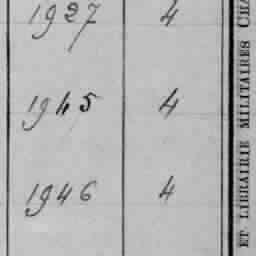 1927 4
1945 4
1946 4
ET LIBRAIRIE MILITAIRES CHA